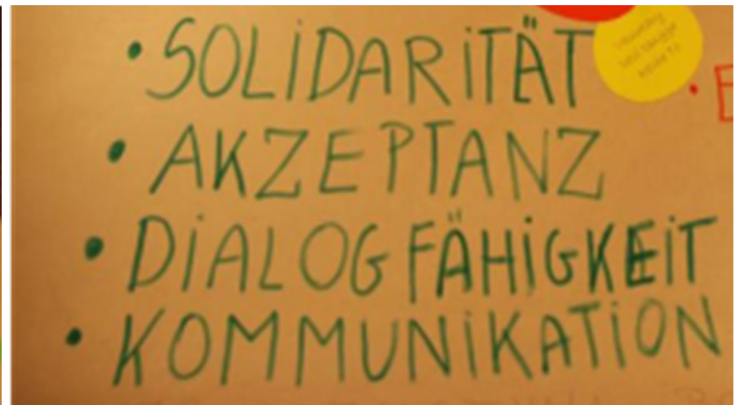 • SOLiDARiTÄT
• AKZEPTANZ
• DiALOGFÄHiGKEiT
• KOMMUNiKATiON